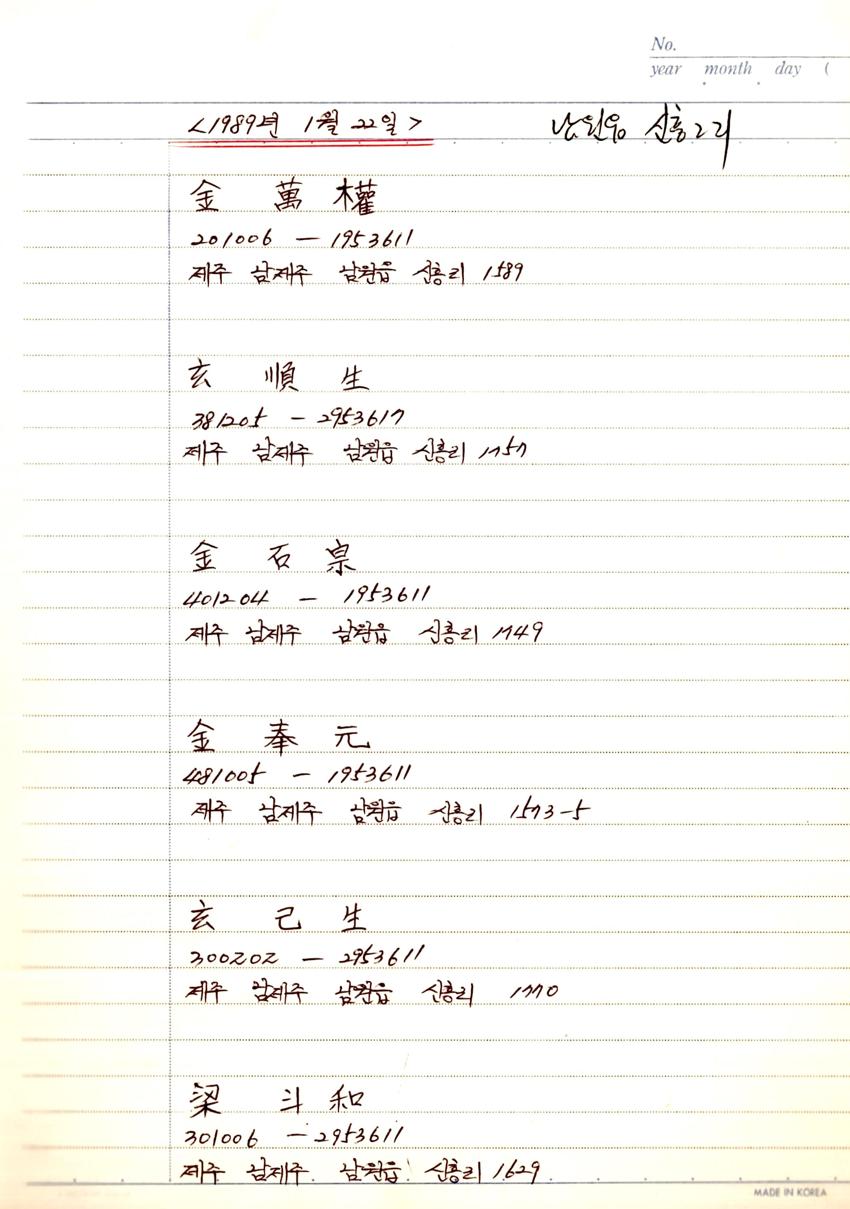 No.
year month day (
<1989년 1월 22일> 남원읍 신흥2리
金 萬 權
201006 — 1953611
제주 남제주 남원읍 신흥리 1589
玄 順 生
381205 — 2953617
제주 남제주 남원읍 신흥리 1757
金 石 宗
401204 — 1953611
제주 남제주 남원읍 신흥리 1749
金 奉 元
481005 — 1953611
제주 남제주 남원읍 신흥리 1573-5
玄 己 生
300202 — 2953611
제주 남제주 남원읍 신흥리 1770
梁 斗 和
301006 — 2953611
제주 남제주 남원읍 신흥리 1629
MADE IN KOREA